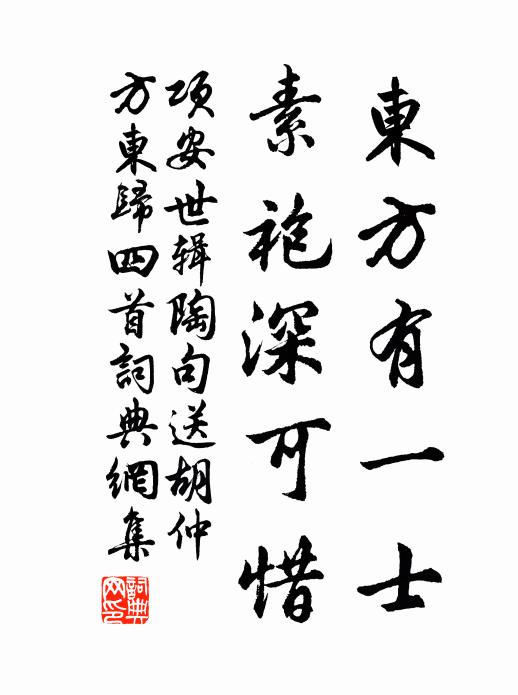 東方有一士
素袍深可惜
項安世辑陶句送胡仲
方東歸四首詞典網集
詞典网印